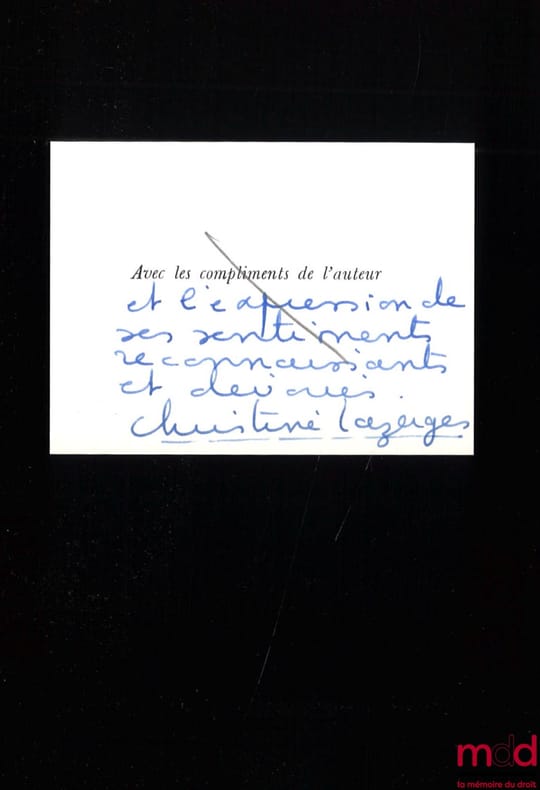 Avec les compliments de l'auteur
et l'expression de
ses sentiments
reconnaissants
et dévoués.
Christine Lazerges
mdd
la mémoire du droit